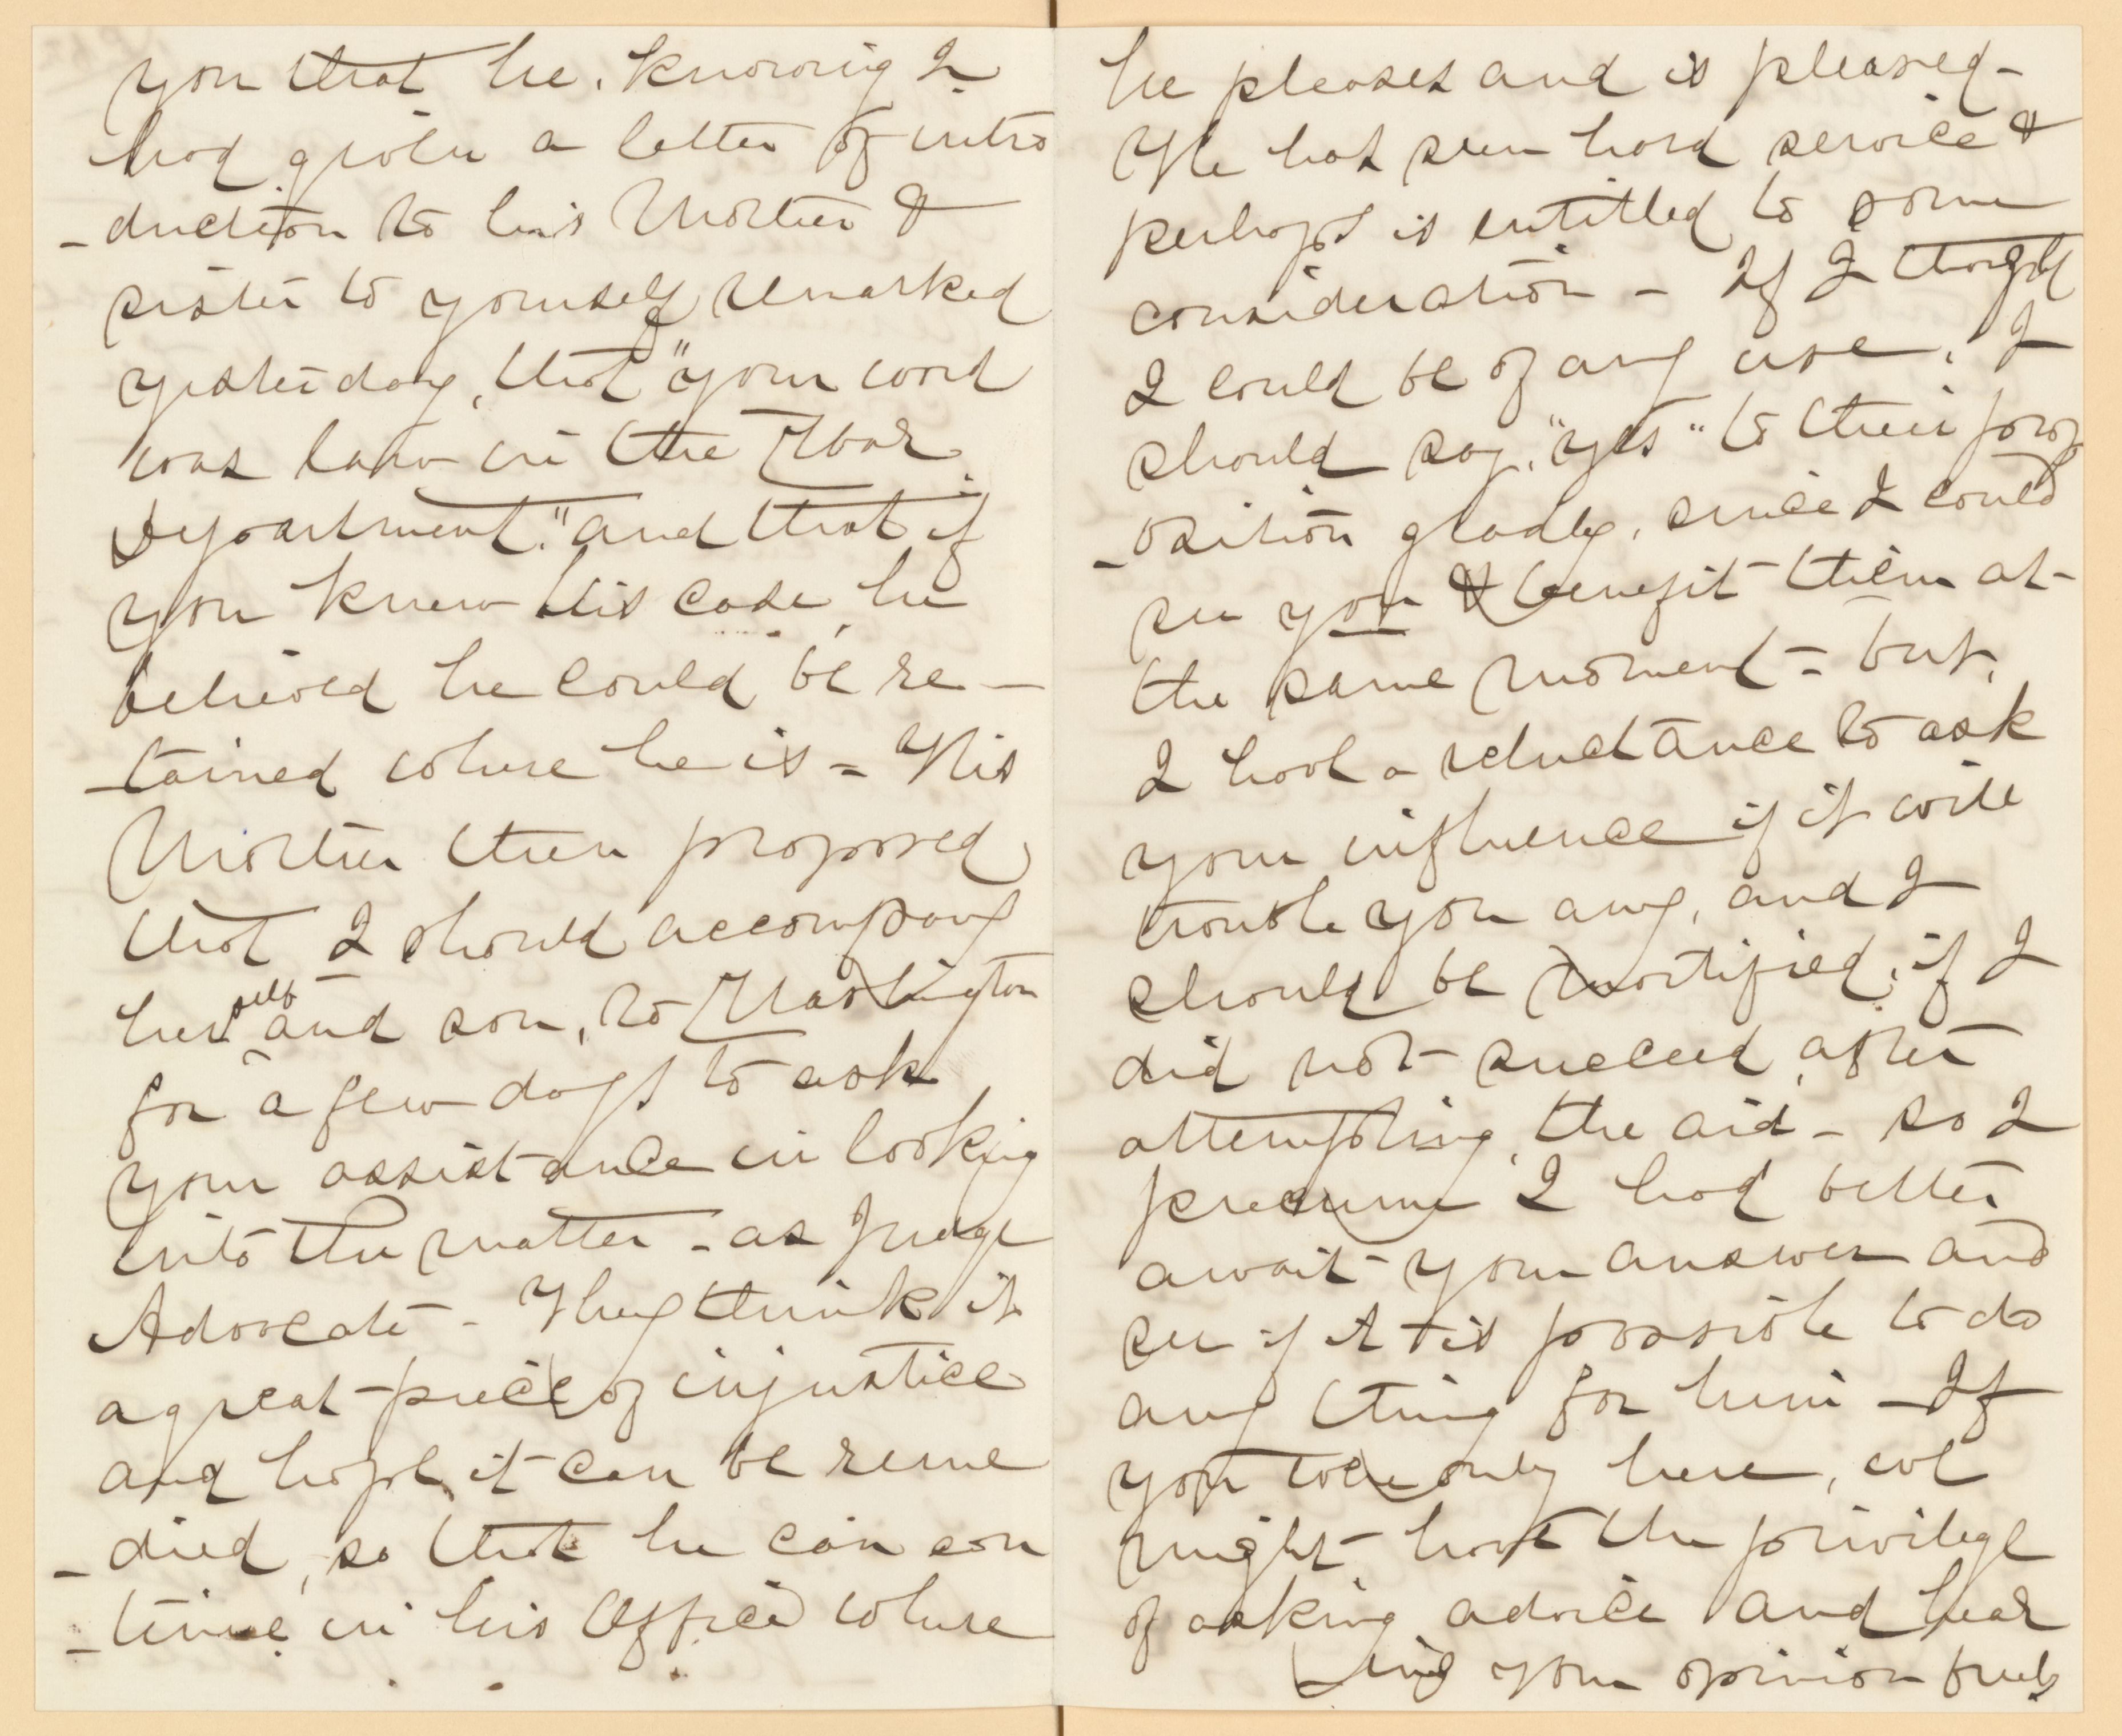 you that he, knowing I
had given a letter of intro
-duction to his Mother &
sister to yourself remarked
yesterday, that "your word
was law in the War
Department." and that if
you knew his case, he
believed he could be re-
-tained where he is = His
Mother then proposed
that I should accompany
her self and son, to Washington
for a few days to ask
your assistance in looking
into the matter - as Judge
Advocate - They think it
a great piece of injustice
and hope it can be reme
-died, so that he can con
-tinue in his Office where
he pleases and is pleased -
He has seen hard service &
perhaps is entitled to some
consideration - If I thought
I could be of any use, I
should say, "yes" to their prop
-osition gladly, since I could
see you & benefit them at
the same moment = but,
I have a reluctance to ask
your influence if it will
trouble you any, and I
should be mortified, if I
did not succeed, after
attempting the aid - so I
presume I had better
await your answer and
see if it is possible to do
any thing for him - If
you were only here, we
might have the privilege
of asking advice and hear
-ing your opinion freely